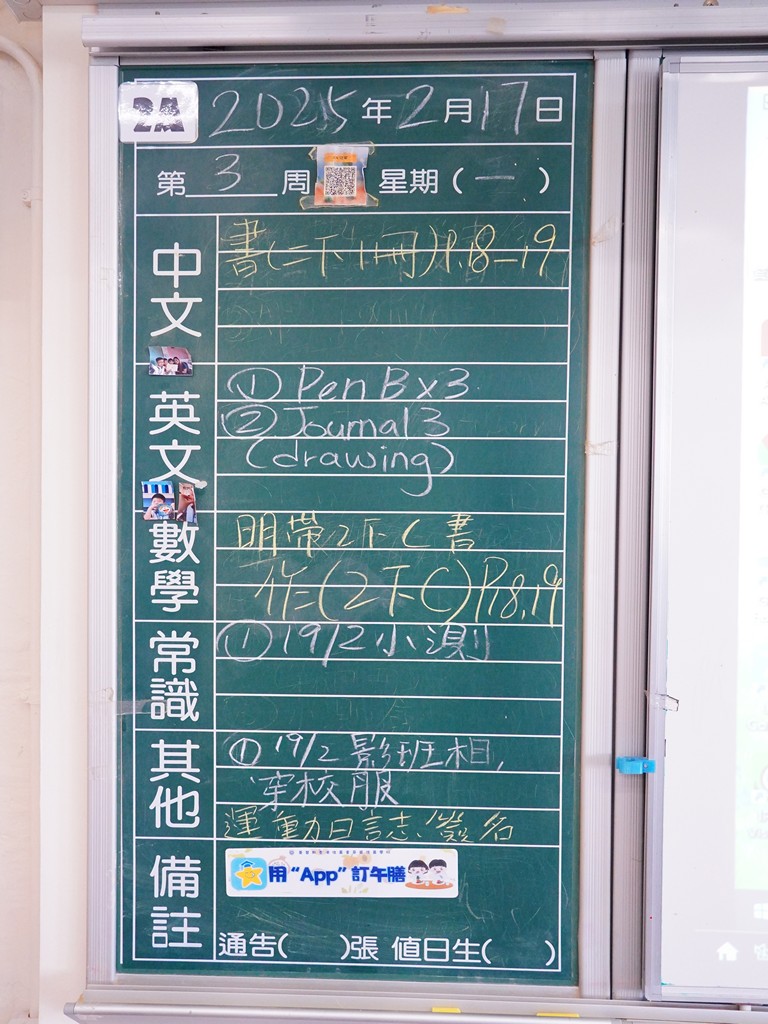 2A 2025年2月17日
第3周 星期(一)
中文
書(二下1冊)P.18-19
英文
① Pen B x3
② Journal 3
(drawing)
數學
明帶2下C書
作(2下C)P.18,19
常識
① 19/2 小測
其他
① 19/2 影班相,
穿校服
運動日誌簽名
備註
用“App”訂午膳
通告( )張 值日生( )